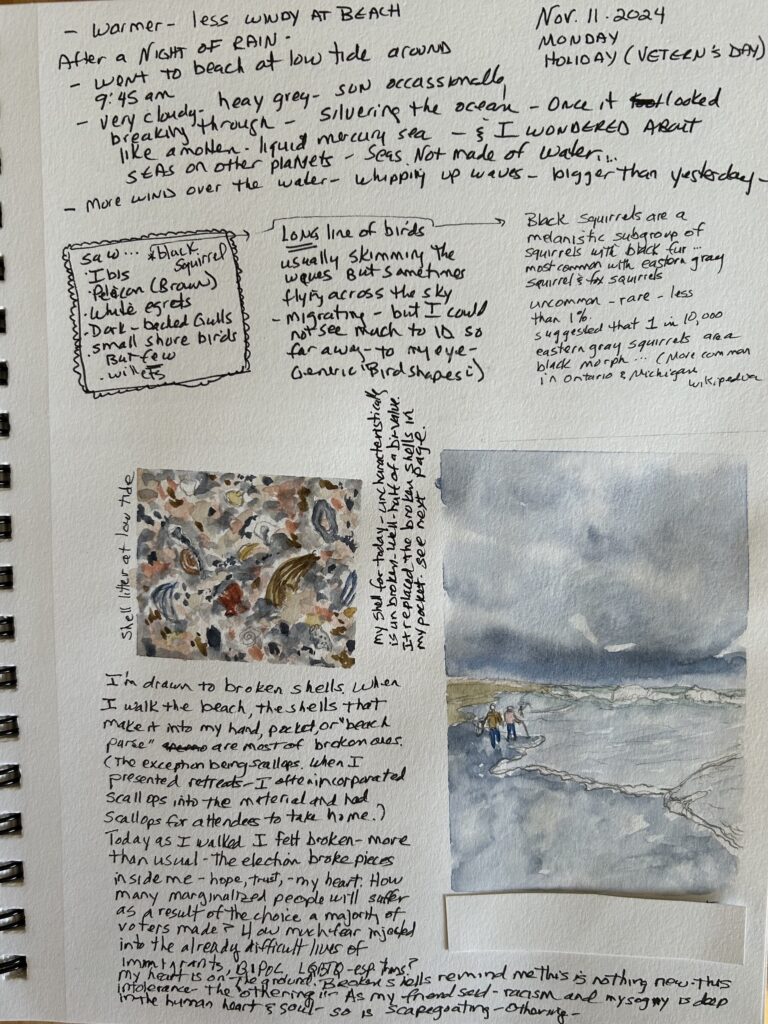 - WARMER - less WINDY AT BEACH
After a NIGHT OF RAIN -
Nov. 11 · 2024
MONDAY
HOLIDAY (VETERN'S DAY)
- WENT TO beach at low tide around
9:45 am
- Very cloudy - heavy grey - SUN occassionally
breaking through - silvering the ocean - Once it looked
like a molten - liquid mercury sea - & I WONDERED ABOUT
SEAS ON other planets - Seas. Not made of water...
- More WIND over the water - whipping up waves - bigger than yesterday -
saw... *black
Squirrel
· Ibis
· Pelican (Brown)
· White egrets
· Dark-backed Gulls
· small shore birds
But few
· willets
LONG line of birds
usually skimming the
waves But sometimes
flying across the sky
- migrating - but I could
not see much to ID so
far away - to my eye -
Generic "Bird shapes")
Black squirrels are a
melanistic subgroup of
squirrels with black fur...
most common with eastern gray
squirrel & fox squirrels
uncommon - rare - less
than 1%.
suggested that 1 in 10,000
eastern gray squirrels are a
black morph... (More common
in Ontario & Michigan
wikipedia
Shell litter at low tide
my shell for today - uncharacteristically
is unbroken - well - half of a bi-valve.
It replaced the broken shells in
my pocket. see next page.
I'm drawn to broken shells. When
I walk the beach, the shells that
make it into my hand, pocket, or "beach
purse" are most of broken ones.
(The exception being scallops. When I
presented retreats - I often incorporated
scallops into the material and had
scallops for attendees to take home.)
Today as I walked I felt broken - more
than usual - the election broke pieces
inside me - hope, trust, - my heart. How
many marginalized people will suffer
as a result of the choice a majority of
voters made? How much fear injected
into the already difficult lives of
immigrants, BIPOC, LGBTQ - esp trans?
my heart is on the ground. Broken shells remind me this is nothing new - this
intolerance - the "othering" - As my friend said - racism and mysogny is deep
in the human heart & soul - so is scapegoating - othering -